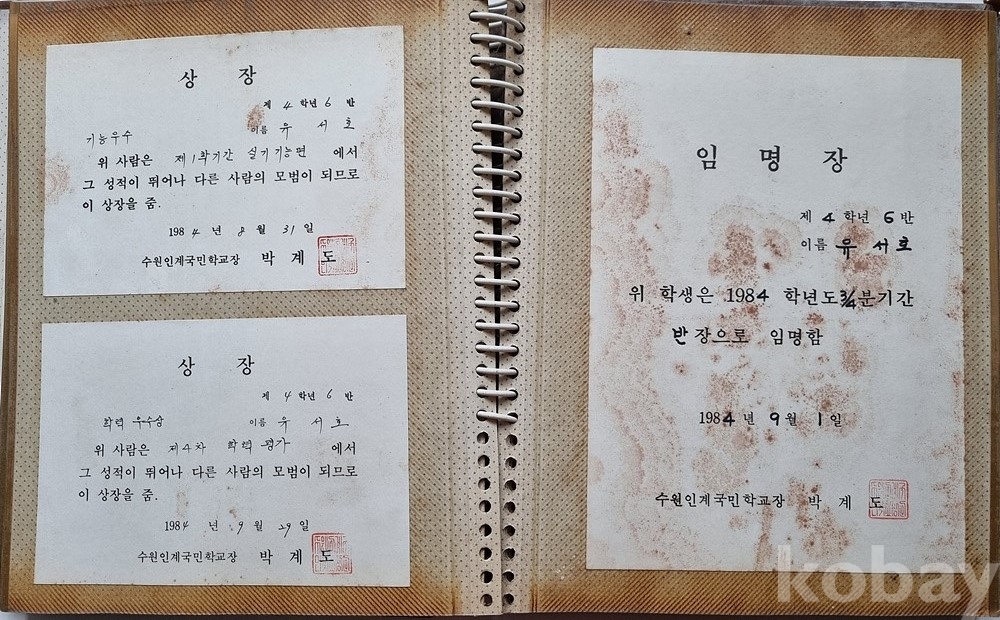 상 장
제 4 학년 6 반
기능우수 이름 유 서 호
위 사람은 제1학기간 실기기능편 에서
그 성적이 뛰어나 다른 사람의 모범이 되므로
이 상장을 줌.
1984 년 8 월 31 일
수원인계국민학교장 박 계 도
상 장
제 4 학년 6 반
학력 우수상 이름 유 서 호
위 사람은 제4차 학력 평가 에서
그 성적이 뛰어나 다른 사람의 모범이 되므로
이 상장을 줌.
1984 년 9 월 29 일
수원인계국민학교장 박 계 도
임 명 장
제 4 학년 6 반
이름 유 서 호
위 학생은 1984 학년도 3/4분기간
반장으로 임명함
1984 년 9 월 1 일
수원인계국민학교장 박 계 도
kobay